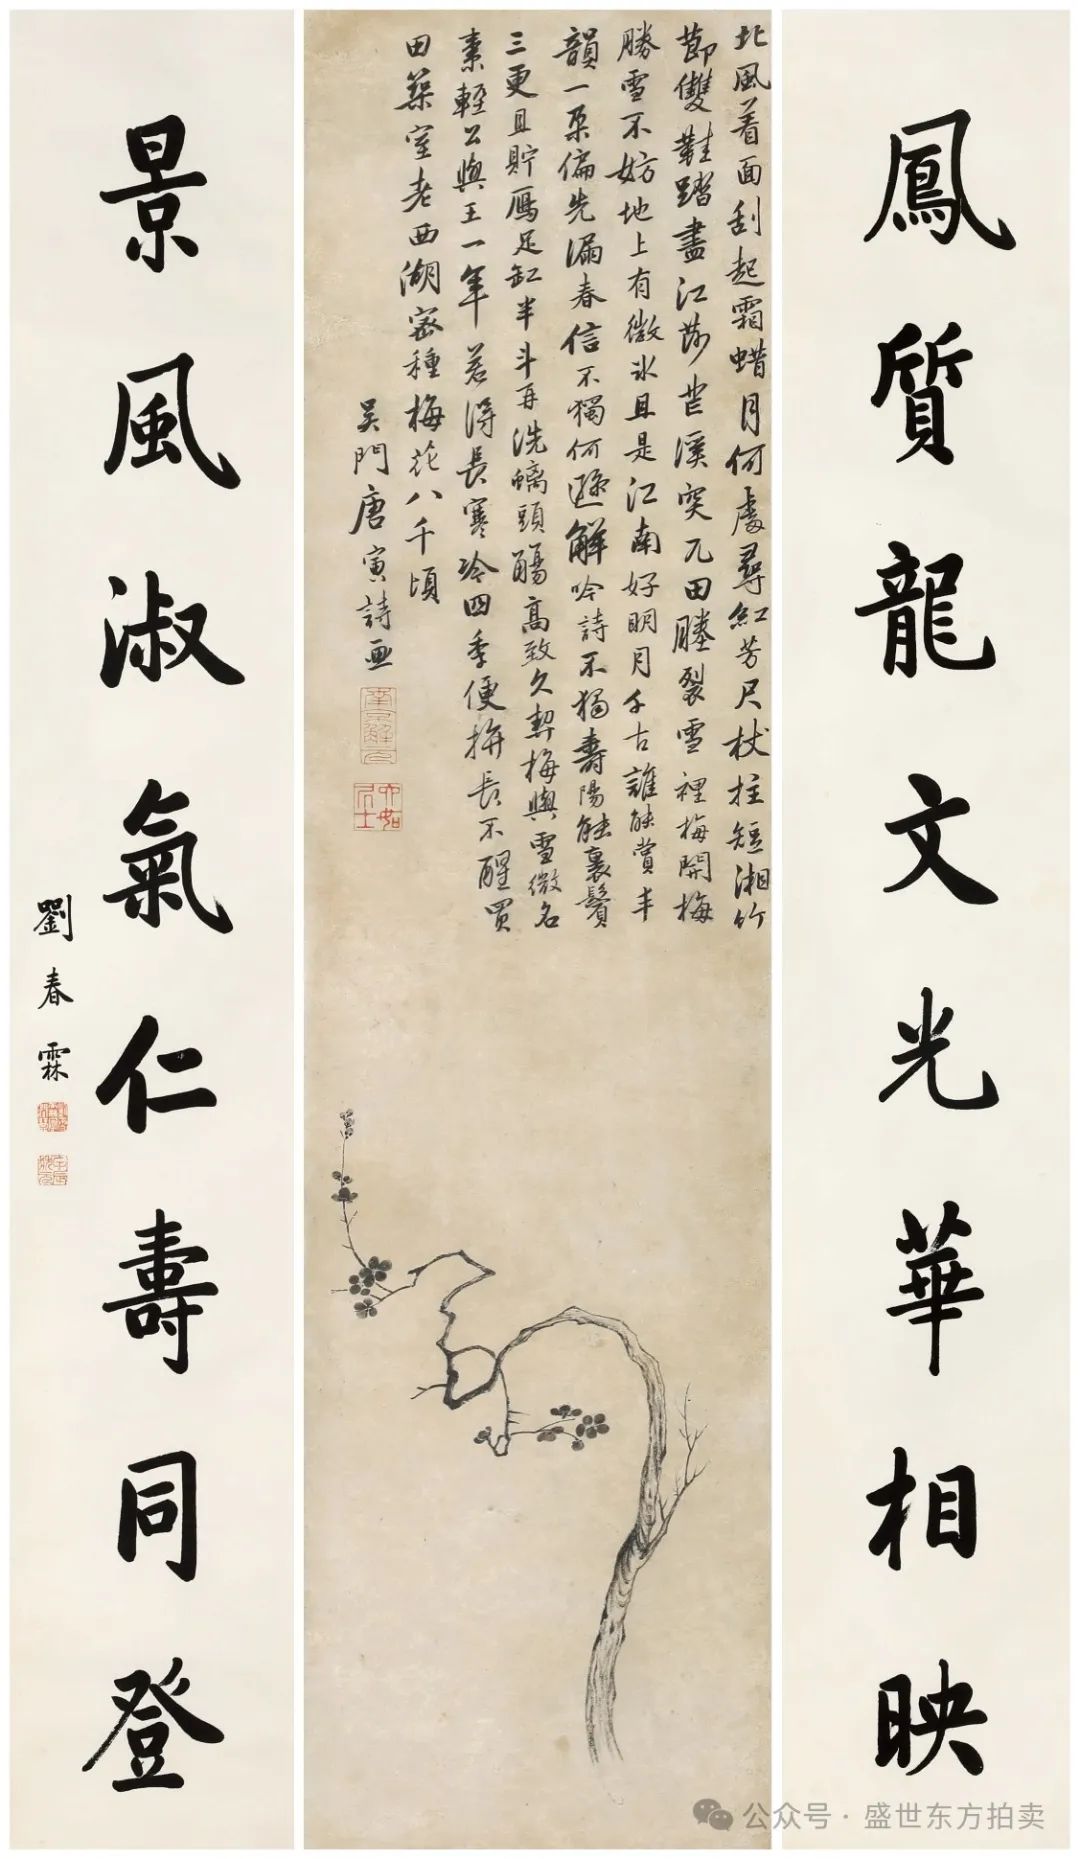 鳳質龍文光華相映
北風着面刮起霜蜡月何處尋紅芳尺杖拄短湘竹
節雙鞋踏盡江莎芒溪突兀田塍裂雪裡梅開梅
勝雪不妨地上有微冰且是江南好明月千古誰能賞丰
韻一朶偏先漏春信不獨何遜解吟詩不獨壽陽能裹鬢
三更且貯鴈足缸半斗再洗螭頭觴高致久契梅與雪微名
素輕公與王一年若得長寒冷四季便拚長不醒買
田築室老西湖密種梅花八千頃
吳門唐寅詩画
南京解元
六如居士
景風淑氣仁壽同登
劉春霖
公众号 · 盛世东方拍卖